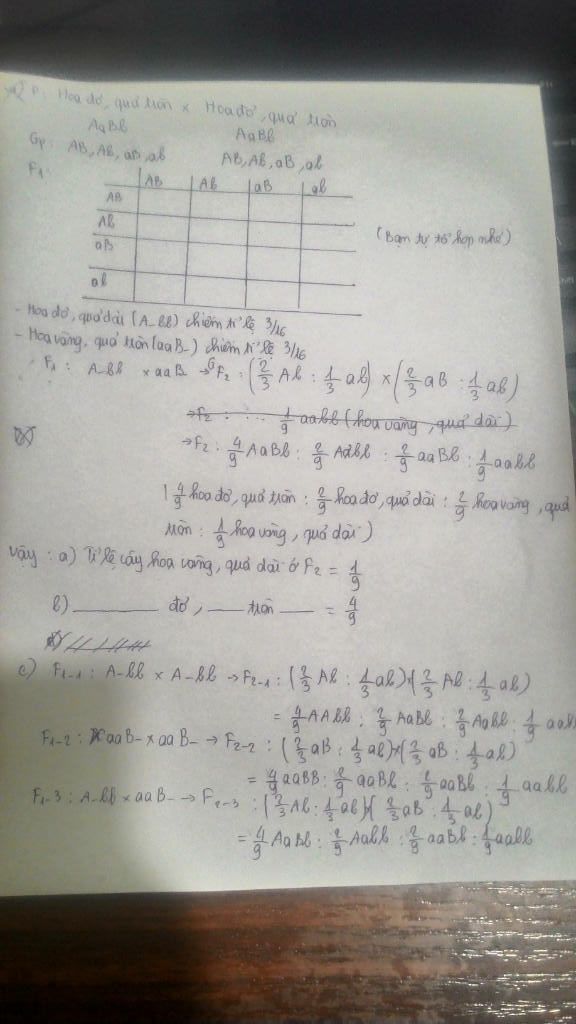 P: Hoa đỏ, quả tròn x Hoa đỏ, quả tròn
AaBb AaBb
Gp: AB, Ab, aB, ab AB, Ab, aB, ab
F1:
AB Ab aB ab
AB
Ab
aB
ab
(Bạn tự tổ hợp nhé)
- Hoa đỏ, quả dài (A-bb) chiếm tỉ lệ 3/16
- Hoa vàng, quả tròn (aaB-) chiếm tỉ lệ 3/16
F1: A-bb x aaB- → GF2: (2/3 Ab : 1/3 ab) x (2/3 aB : 1/3 ab)
→ F2 : ... 1/9 aabb (hoa vàng, quả dài)
→ F2 : 4/9 AaBb : 2/9 Aabb : 2/9 aaBb : 1/9 aabb
(4/9 hoa đỏ, quả tròn : 2/9 hoa đỏ, quả dài : 2/9 hoa vàng, quả
tròn : 1/9 hoa vàng, quả dài)
Vậy : a) Tỉ lệ cây hoa vàng, quả dài ở F2 = 1/9
b) ______ đỏ, __ tròn __ = 4/9
c) F1-1 : A-bb x A-bb → F2-1 : (2/3 Ab : 1/3 ab)x(2/3 Ab : 1/3 ab)
= 4/9 AAbb : 2/9 AaBb : 2/9 Aabb : 1/9 aabb
F1-2 : aaB- x aaB- → F2-2 : (2/3 aB : 1/3 ab)x(2/3 aB : 1/3 ab)
= 4/9 aaBB : 2/9 aaBb : 2/9 aaBb : 1/9 aabb
F1-3 : A-bb x aaB- → F2-3 : (2/3 Ab : 1/3 ab)x(2/3 aB : 1/3 ab)
= 4/9 AaBb : 2/9 Aabb : 2/9 aaBb : 1/9 aabb